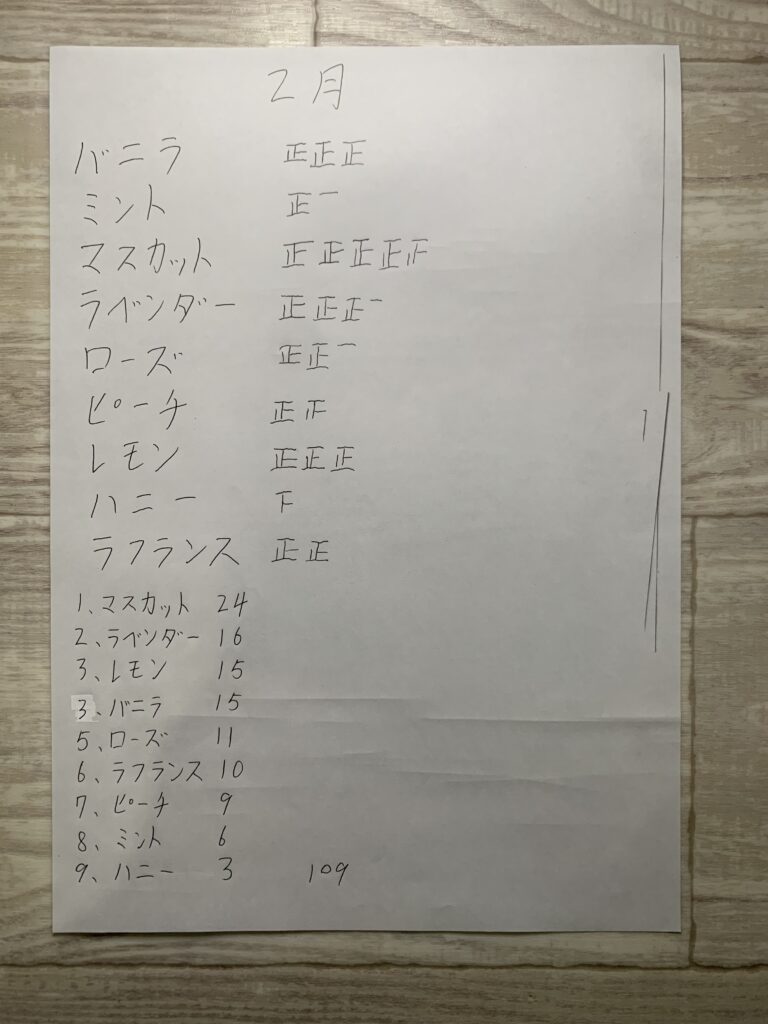 2月
バニラ 正正正
ミント 正一
マスカット 正正正正正
ラベンダー 正正正一
ローズ 正正一
ピーチ 正正
レモン 正正正
ハニー 下
ラフランス 正正
1、マスカット 24
2、ラベンダー 16
3、レモン 15
3、バニラ 15
5、ローズ 11
6、ラフランス 10
7、ピーチ 9
8、ミント 6
9、ハニー 3 109